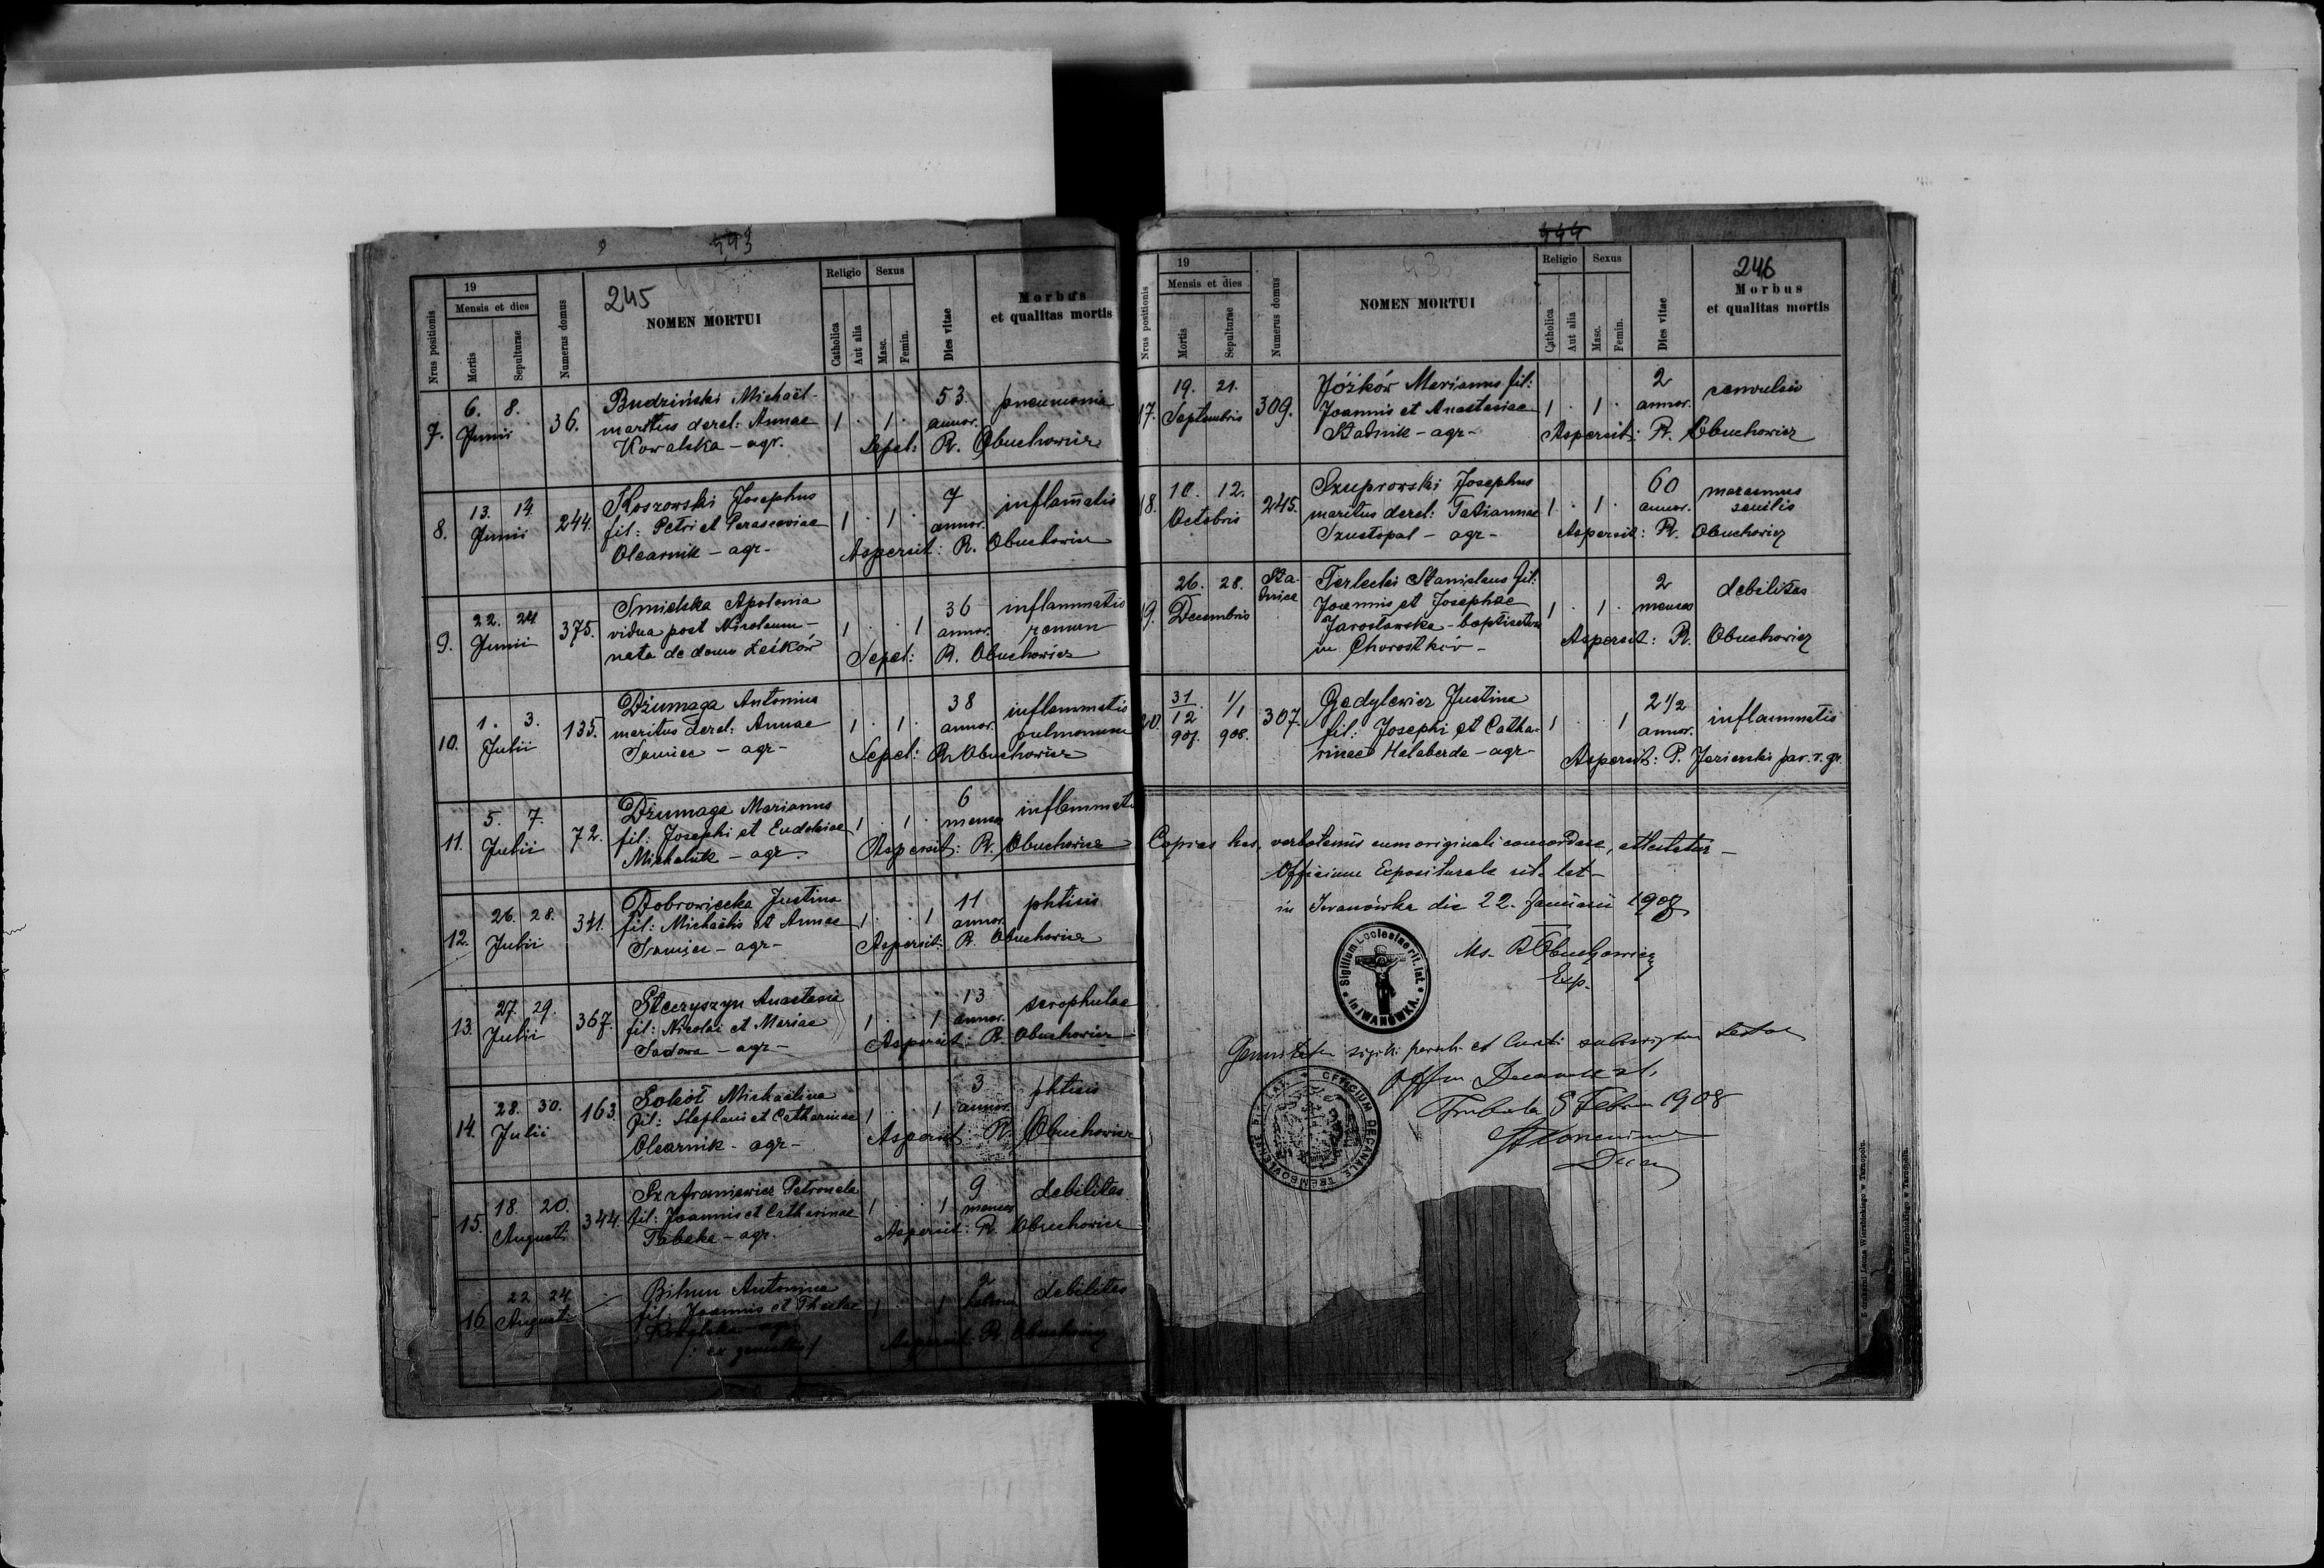 493
245
19
Mensis et dies
Nrus positionis
Mortis
Sepulturae
Numerus domus
NOMEN MORTUI
Religio
Catholica
Aut alia
Sexus
Masc.
Femin.
Dies vitae
Morbus
et qualitas mortis
7. 6. 8. Junii 36.
Budziński Michaël
maritus derel: Annae
Kowalska – agr.
1 . 1 . 53. annor. pneumonia
Sepel: R. Obuchowicz
8. 13. 14. Junii 244.
Koszowski Josephus
fil: Petri et Parasceviae
Olearnik – agr –
1 . 1 . 7 annor. inflam̄atio
Aspersit: R. Obuchowicz
9. 22. 24 Junii 375.
Smielska Apolonia
vidua post Nicolaum –
nata de domo Leśków
1 . . 1 36 annor. inflammatio
renum
Sepel: R. Obuchowicz
10. 1. 3. Julii 135.
Dżumaga Antonius
maritus derel: Annae
Iraniec – agr –
1 . 1 . 38 annor. inflammatio
pulmonum
Sepel: R. Obuchowicz
11. 5. 7. Julii 72.
Dżumaga Marianus
fil: Josephi et Eudokiae
Michaluk – agr.
1 . 1 . 6 menses inflammatio
Aspersit: R. Obuchowicz
12. 26. 28. Julii 341.
Dobrowiecka Justina
fil: Michaëlis et Annae
Iraniec – agr –
1 . . 1 11 annor. phtisis
Aspersit: R. Obuchowicz
13. 27. 29. Julii 367.
Steczyszyn Anastasia
fil: Nicolai et Mariae
Sadowa – agr –
1 . . 1 13 annor. scrophulae
Aspersit: R. Obuchowicz
14. 28. 30. Julii 163
Sokół Michaëlina
fil: Stephani et Catharinae
Olearnik – agr –
1 . . 1 3 annor. phtisis
Aspersit R. Obuchowicz
15. 18. 20. Augusti 344.
Szafraniewicz Petronela
fil: Joannis et Catharinae
Tabaka – agr.
1 . . 1 9 menses debilitas
Aspersit: R. Obuchowicz
16 22 24 Augusti
Bihun Antonina
fil: Joannis et Theclae
agr
/: ex gemellis :/
1 . . 1 2 debilitas
Aspersit: R. Obuchowicz
444
246
19
Mensis et dies
Nrus positionis
Mortis
Sepulturae
Numerus domus
NOMEN MORTUI
Religio
Catholica
Aut alia
Sexus
Masc.
Femin.
Dies vitae
Morbus
et qualitas mortis
17. 19. 21. Septembris 309.
Jóźków Marianus fil:
Joannis et Anastasiae
Stadnik – agr –
1 . 1 . 2 annor. convulsio
Aspersit: R. Obuchowicz
18. 10. 12. Octobris 245.
Szuprowski Josephus
maritus derel: Tatiannae
Szustopal – agr –
1 . 1 . 60 annor. marasmus
senilis
Aspersit: R. Obuchowicz
19. 26. 28. Decembris
Terlecki Stanislaus fil:
Joannis et Josephae
Jarosławska – baptisatus
in Chorostków –
1 . 1 . 2 menses debilitas
Aspersit: R. Obuchowicz
20. 31/12 907. 1/1 908. 307.
Gadylewicz Justina
fil: Josephi et Catha-
rinae Halaberda – agr –
1 . . 1 2 1/2 annor. inflammatio
Aspersit: P. Jezierski par. r. gr.
Copias has, verbotenus cum originali concordare, attestatur –
Officium Expositurale rit. lat –
in Iwanówka die 22. Januarii 1908
Sigillum Ecclesiae rit. lat.
in IWANÓWKA.
Ms. R Obuchowicz
Exp.
sigilli paroch. et
Decanale
8 Febru 1908
OFFICIUM DECANALE TREMBOVLENSE RIT. LAT.
Z drukarni Leona Wierzbickiego w Tarnopolu.